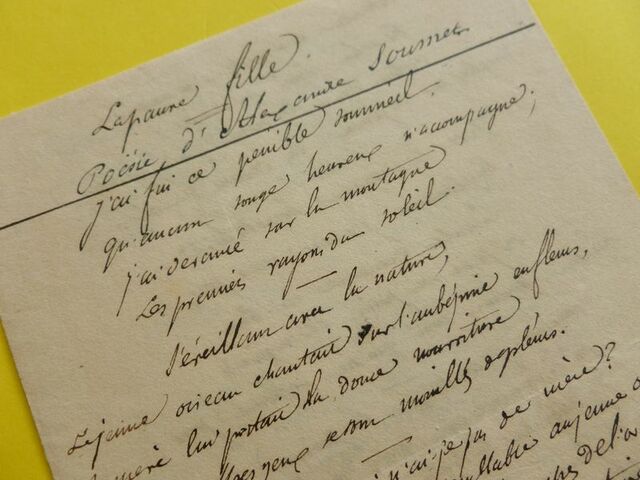 La pauvre fille.
Poësie d'Alexandre Soumet
j'ai fui ce pénible sommeil.
qu'aucun songe heureux n'accompagne;
j'ai devancé sur la montagne
Les premiers rayons du soleil.
S'éveillant avec la nature,
Le jeune oiseau chantait sur l'aubépine en fleurs,
mère lui portait la douce nourriture
yeux se sont mouillés de pleurs.
n'ai-je pas de mère?
au jeune
de l'o